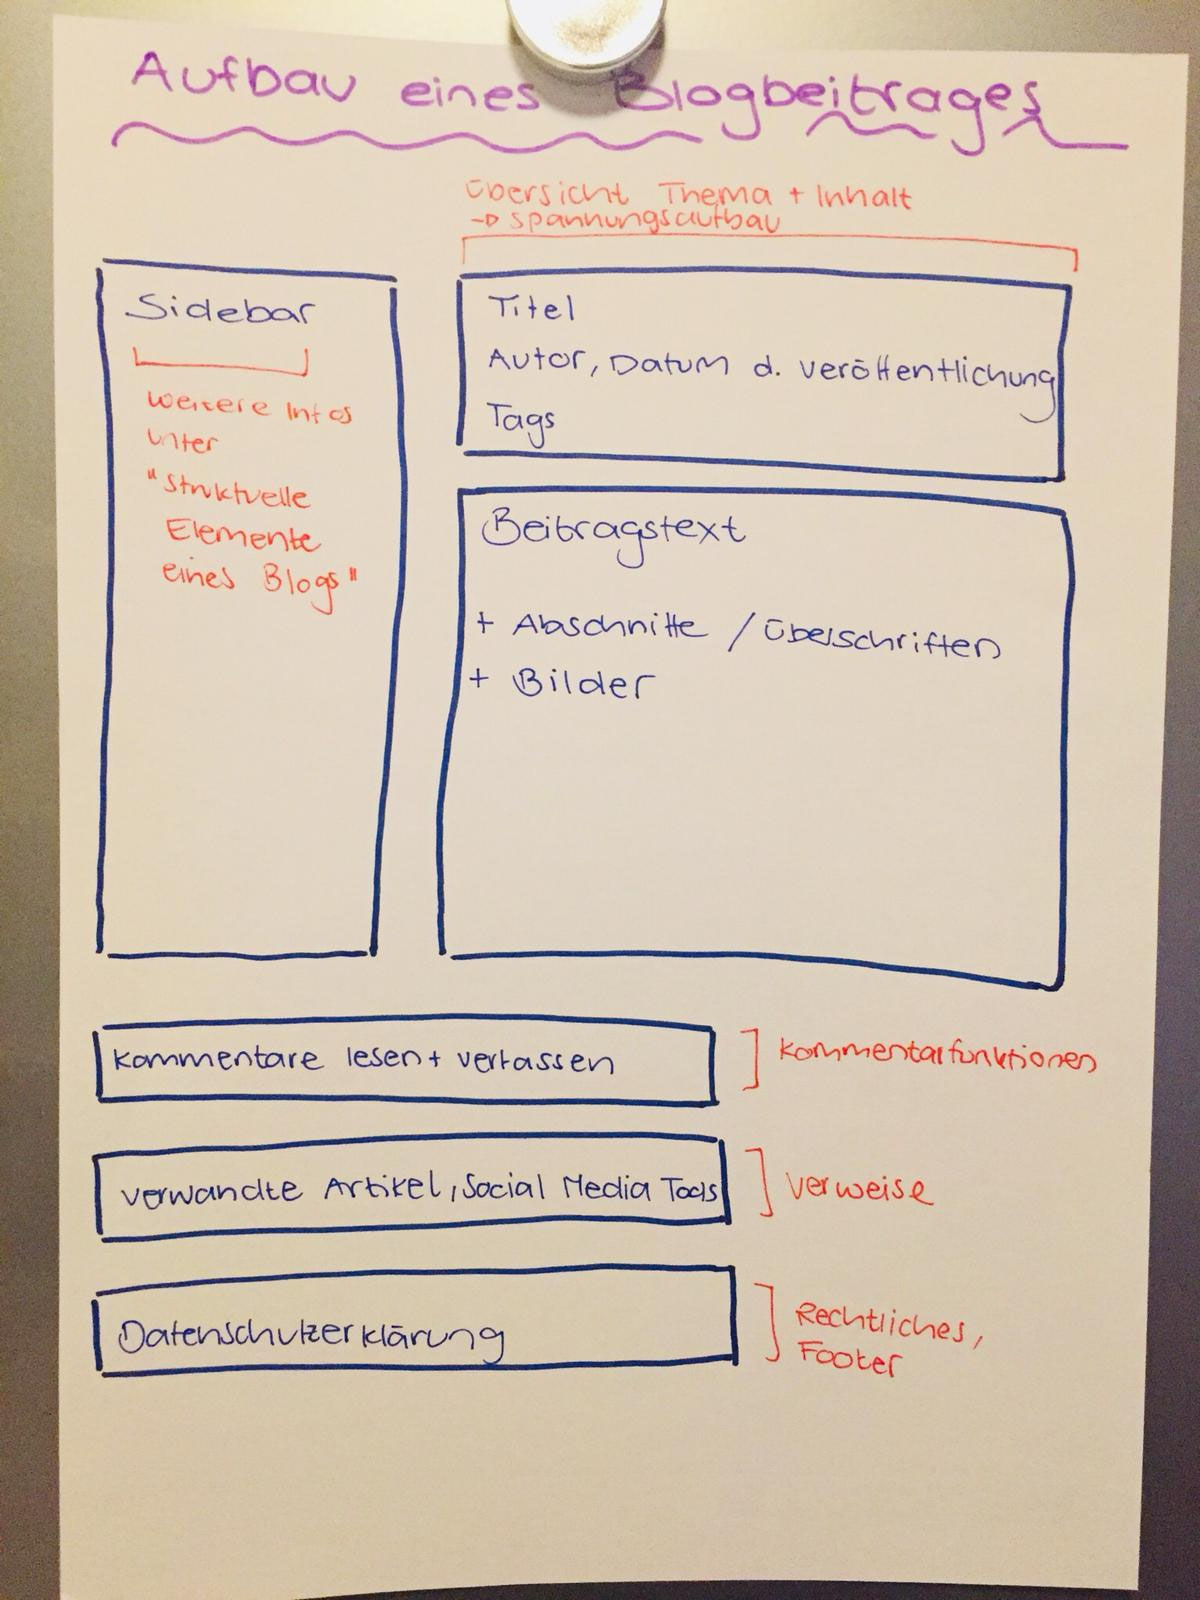 Aufbau eines Blogbeitrages
Übersicht Thema + Inhalt
→ Spannungsaufbau
Sidebar
weitere Infos
unter
"Struktuelle
Elemente
eines Blogs"
Titel
Autor, Datum d. Veröffentlichung
Tags
Beitragstext
+ Abschnitte / Überschriften
+ Bilder
Kommentare lesen + verfassen
Kommentarfunktionen
verwandte Artikel, Social Media Tools
Verweise
Datenschutzerklärung
Rechtliches,
Footer